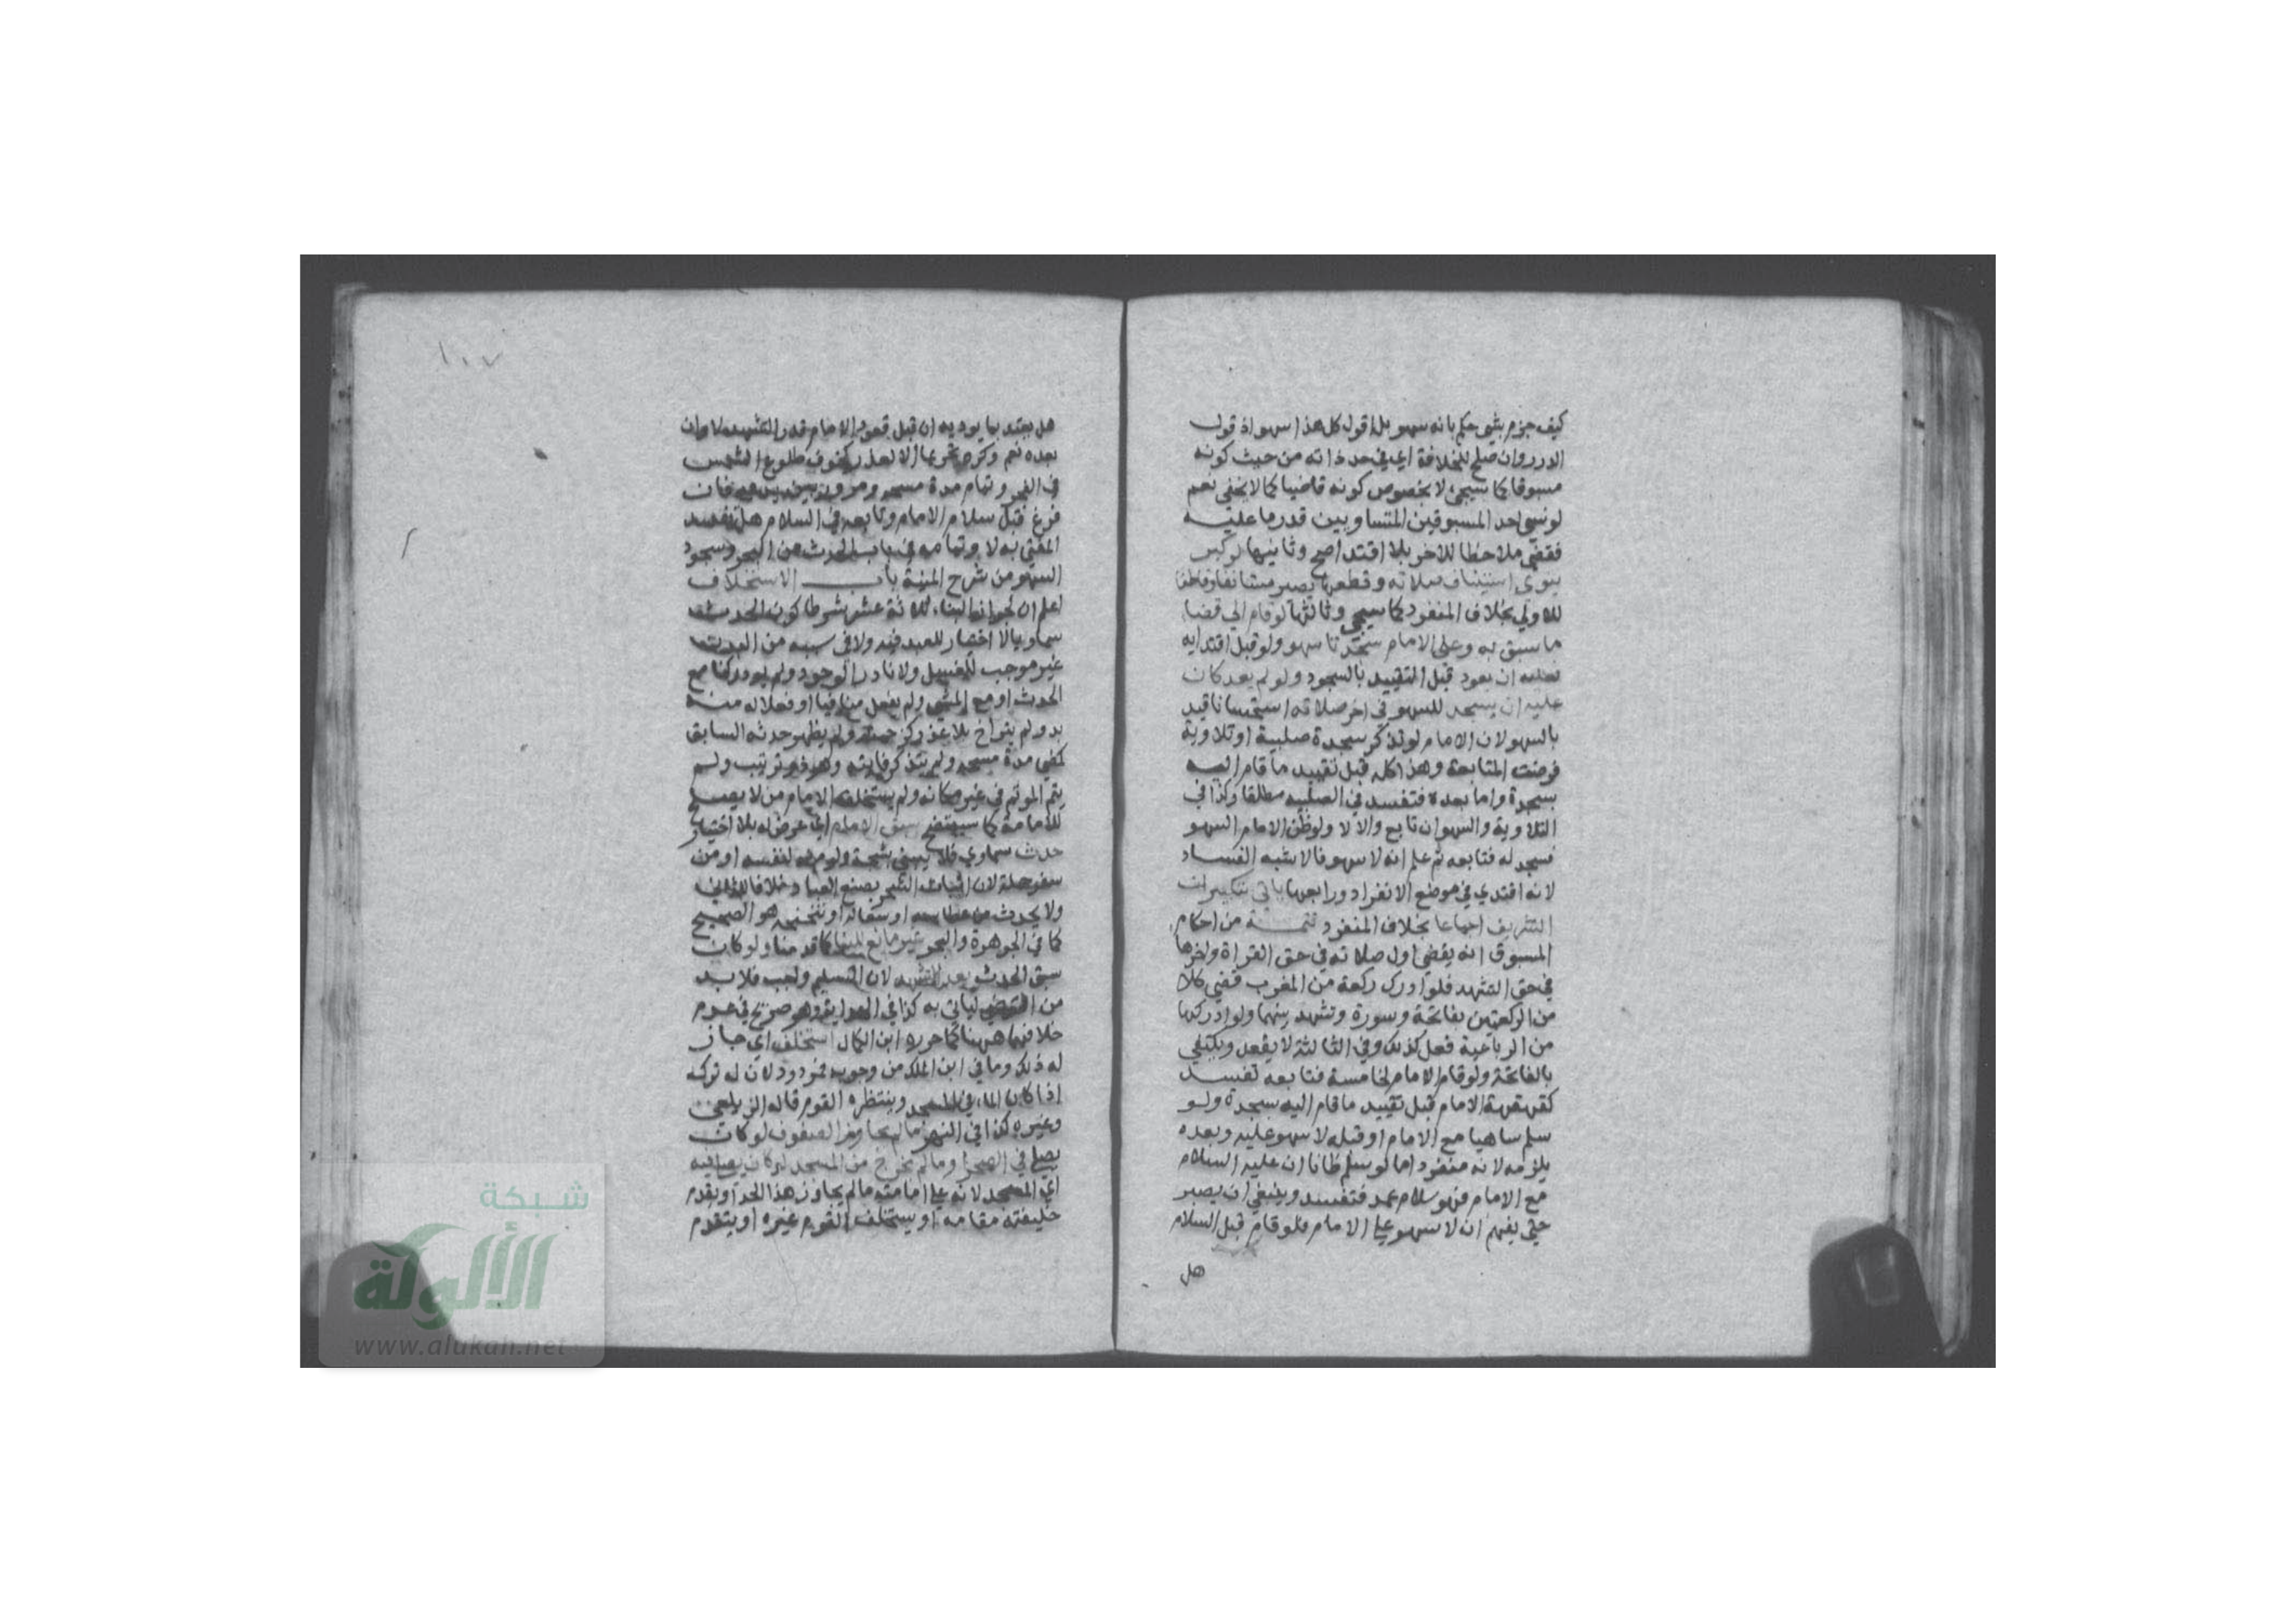 كيف جزم بشي حكم بانه سهو بل اقول كل هذا سهو اذ قول
الدرر وان صلح للخلافة اي في حد ذاته من حيث كونه
مسبوقا كما سيجي لا بخصوص كونه قاضيا كما لا يخفى نعم
لو نسي احد المسبوقين المتساويين قدر ما عليه
فقضى ملاحظا للاخر بلا اقتدا صح وثانيها لو كبر
ينوي استيناف صلاته وقطعها يصير مستانفا وقاطعا
للاولي بخلاف المنفرد كما سيجي وثالثها لو قام الي قضا
ما سبق به وعلى الامام سجدتا سهو ولو قبل اقتدايه
فعليه ان يعود قبل التقييد بالسجود ولو لم يعد كان
عليه ان يسجد للسهو في اخر صلاته استحسانا قيد
بالسهو لان الامام لو تذكر سجدة صلبية او تلاوية
فرضت المتابعة وهذا كله قبل تقييد ما قام اليه
بسجدة واما بعده فتفسد في الصلبيه مطلقا وكذا في
التلاوية والسهو ان تابع والا لا ولو ظن الامام السهو
فسجد له فتابعه ثم علم انه لا سهو فالاشبه الفساد
لانه اقتدي في موضع الانفراد ورابعها ياتي بتكبيرات
التشريف اجماعا بخلاف المنفرد تتمة من احكام
المسبوق انه يقضي اول صلاته في حق القراة واخرها
في حق التشهد فلو ادرك ركعة من المغرب قضي كلا
من الركعتين بفاتحة وسورة وتشهد بينهما ولو ادركها
من الرباعية فعل كذلك وفي الثالثة لا يقعد ويكتفي
بالفاتحة ولو قام الامام لخامسة فتابعه تفسد
كقهقهة الامام قبل تقييد ما قام اليه بسجدة ولو
سلم ساهيا مع الامام او قبله لا سهو عليه وبعده
يلزمه لانه منفرد اما لو سلم ظانا ان عليه السلام
مع الامام فهو سلام عمد فتفسد وينبغي ان يصبر
حتى يفهم ان لا سهو علي الامام فلو قام قبل السلام
هل
١٠٧
هل يعتد بما يوديه ان قبل قعود الامام قدر التشهد لا وان
بعده نعم وكره تحريما الا لعذر كخوف طلوع الشمس
في الفجر وتمام مدة مسحه ومرور بين يديه فان
فرغ قبل سلام الامام وتابعه في السلام هل تفسد
المفتي به لا وتمامه في باب الحدث من البحر وسجود
السهو من شرح المنية باب الاستخلاف
اعلم ان لجواز البناء ثلاثة عشر شرطا كون الحدث
سماويا لا اختيار للعبد فيه ولا في سببه من البدن
غير موجب للغسل ولا نادر الوجود ولم يود ركنا مع
الحدث او مع المشي ولم يفعل منافيا او فعلا له منه
بد ولم يتراخ بلا عذر كزحمة ولم يظهر حدثه السابق
كمضي مدة مسحه ولم يتذكر فايته وهو ذو ترتيب ولم
يتم الموتم في غير مكانه ولم يستخلف الامام من لا يصلح
للامامة كما سيتضح سبق الامام اي عرض له بلا اختيار
حدث سماوي فلا يبني بشجة ولو من نفسه او من
سفرجلة لان اثبات الشجر بصنع العباد خلافا للثاني
ولا يحدث من عطاسه او سعاله او تنحنحه هو الصحيح
كما في الجوهرة والبحر غير مانع للبنا كما قدمنا ولو كان
سبق الحدث بعد التشهد لان التسليم واجب فلا بد
من التوضي لياتي به كذا في الهداية وهو صريح في عدم
خلافهما ههنا كما حرره ابن الكمال استخلف اي جاز
له ذلك وما في ابن الملك من وجوبه مردود لان له تركه
اذا كان الماء في المسجد وينتظره القوم قاله الزيلعي
وغيره كذا في النهر ما لم يجاوز الصفوف لو كان
يصلي في الصحرا وما لم يخرج من المسجد لو كان يصلي فيه
اي المسجد لانه علي امامته ما لم يجاوز هذا الحد او يقدم
خليفته مقامه او يستخلف القوم غيره او يتقدم
شبكة
الألوكة
www.alukah.net